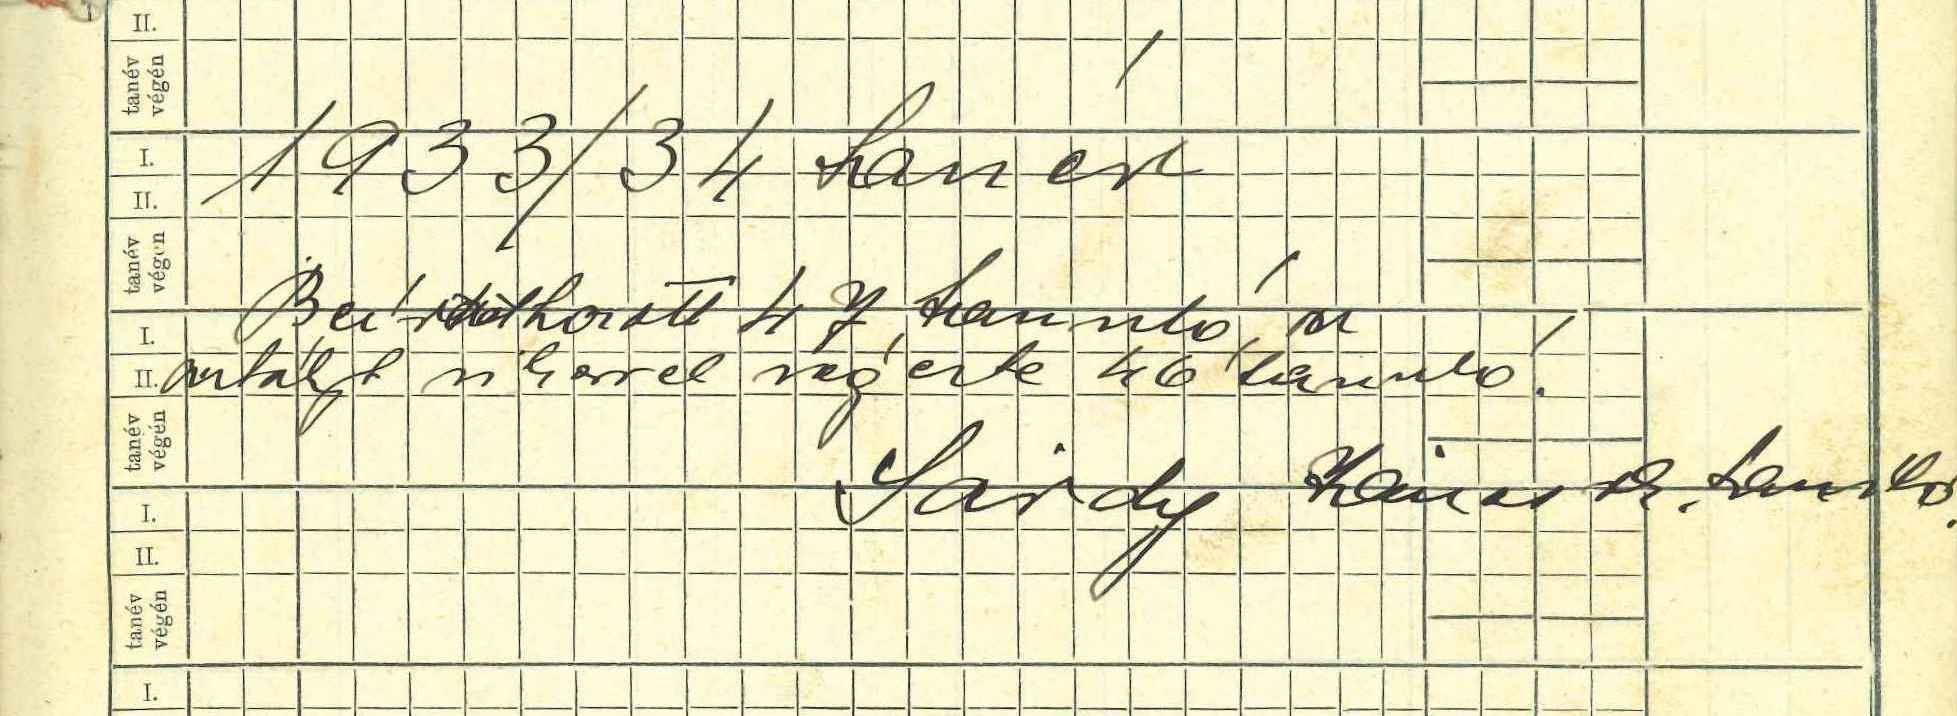 II.
tanév végén
I.
1933/34 tanév
II.
tanév végén
Beiratkozott 47 tanuló, az
I.
II.
osztályt sikerrel végezte 46 tanuló!
tanév végén
Sárdy János k. tanító.
I.
II.
tanév végén
I.